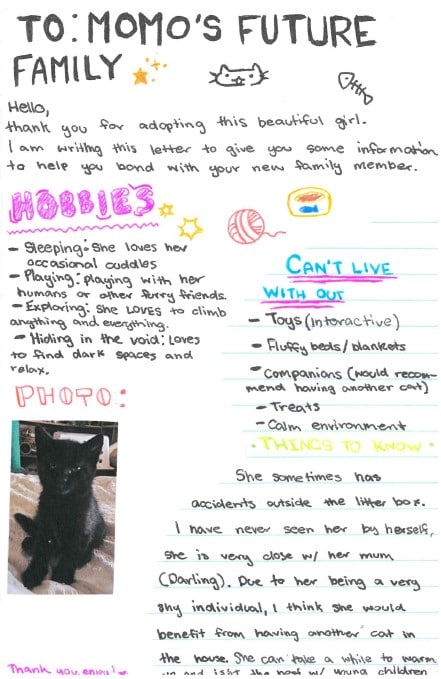 TO: MOMO'S FUTURE
FAMILY
Hello,
thank you for adopting this beautiful girl.
I am writing this letter to give you some information
to help you bond with your new family member.
HOBBIES
- Sleeping: she loves her
occasional cuddles
- Playing: playing with her
humans or other furry friends.
- Exploring: she LOVES to climb
anything and everything.
- Hiding in the void: Loves
to find dark spaces and
relax.
CAN'T LIVE
WITH OUT
- Toys (interactive)
- Fluffy beds/blankets
- Companions (would recom-
mend having another cat)
- Treats
- Calm environment
PHOTO:
• THINGS TO KNOW •
She sometimes has
accidents outside the litter box.
I have never seen her by herself,
she is very close w/ her mum
(Darling). Due to her being a very
shy individual, I think she would
benefit from having another cat in
the house. She can take a while to warm
up and isn't the best w/ young children
Thank you, enjoy!